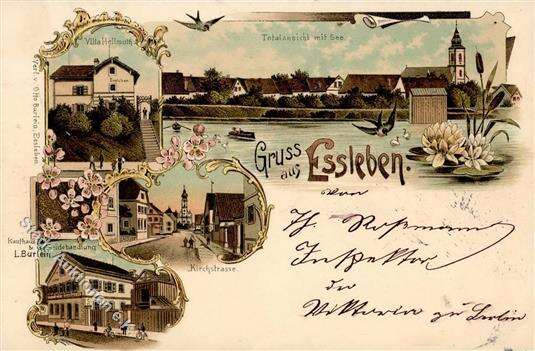 Villa Hellmuth
Totalansicht mit See.
Verl. v. Otto Burlein, Essleben.
Gruss
aus Essleben.
von
Th. Roßmann
Inspektor
der
Viktoria zu Berlin
Kirchstrasse.
Kaufhaus
L. Burlein